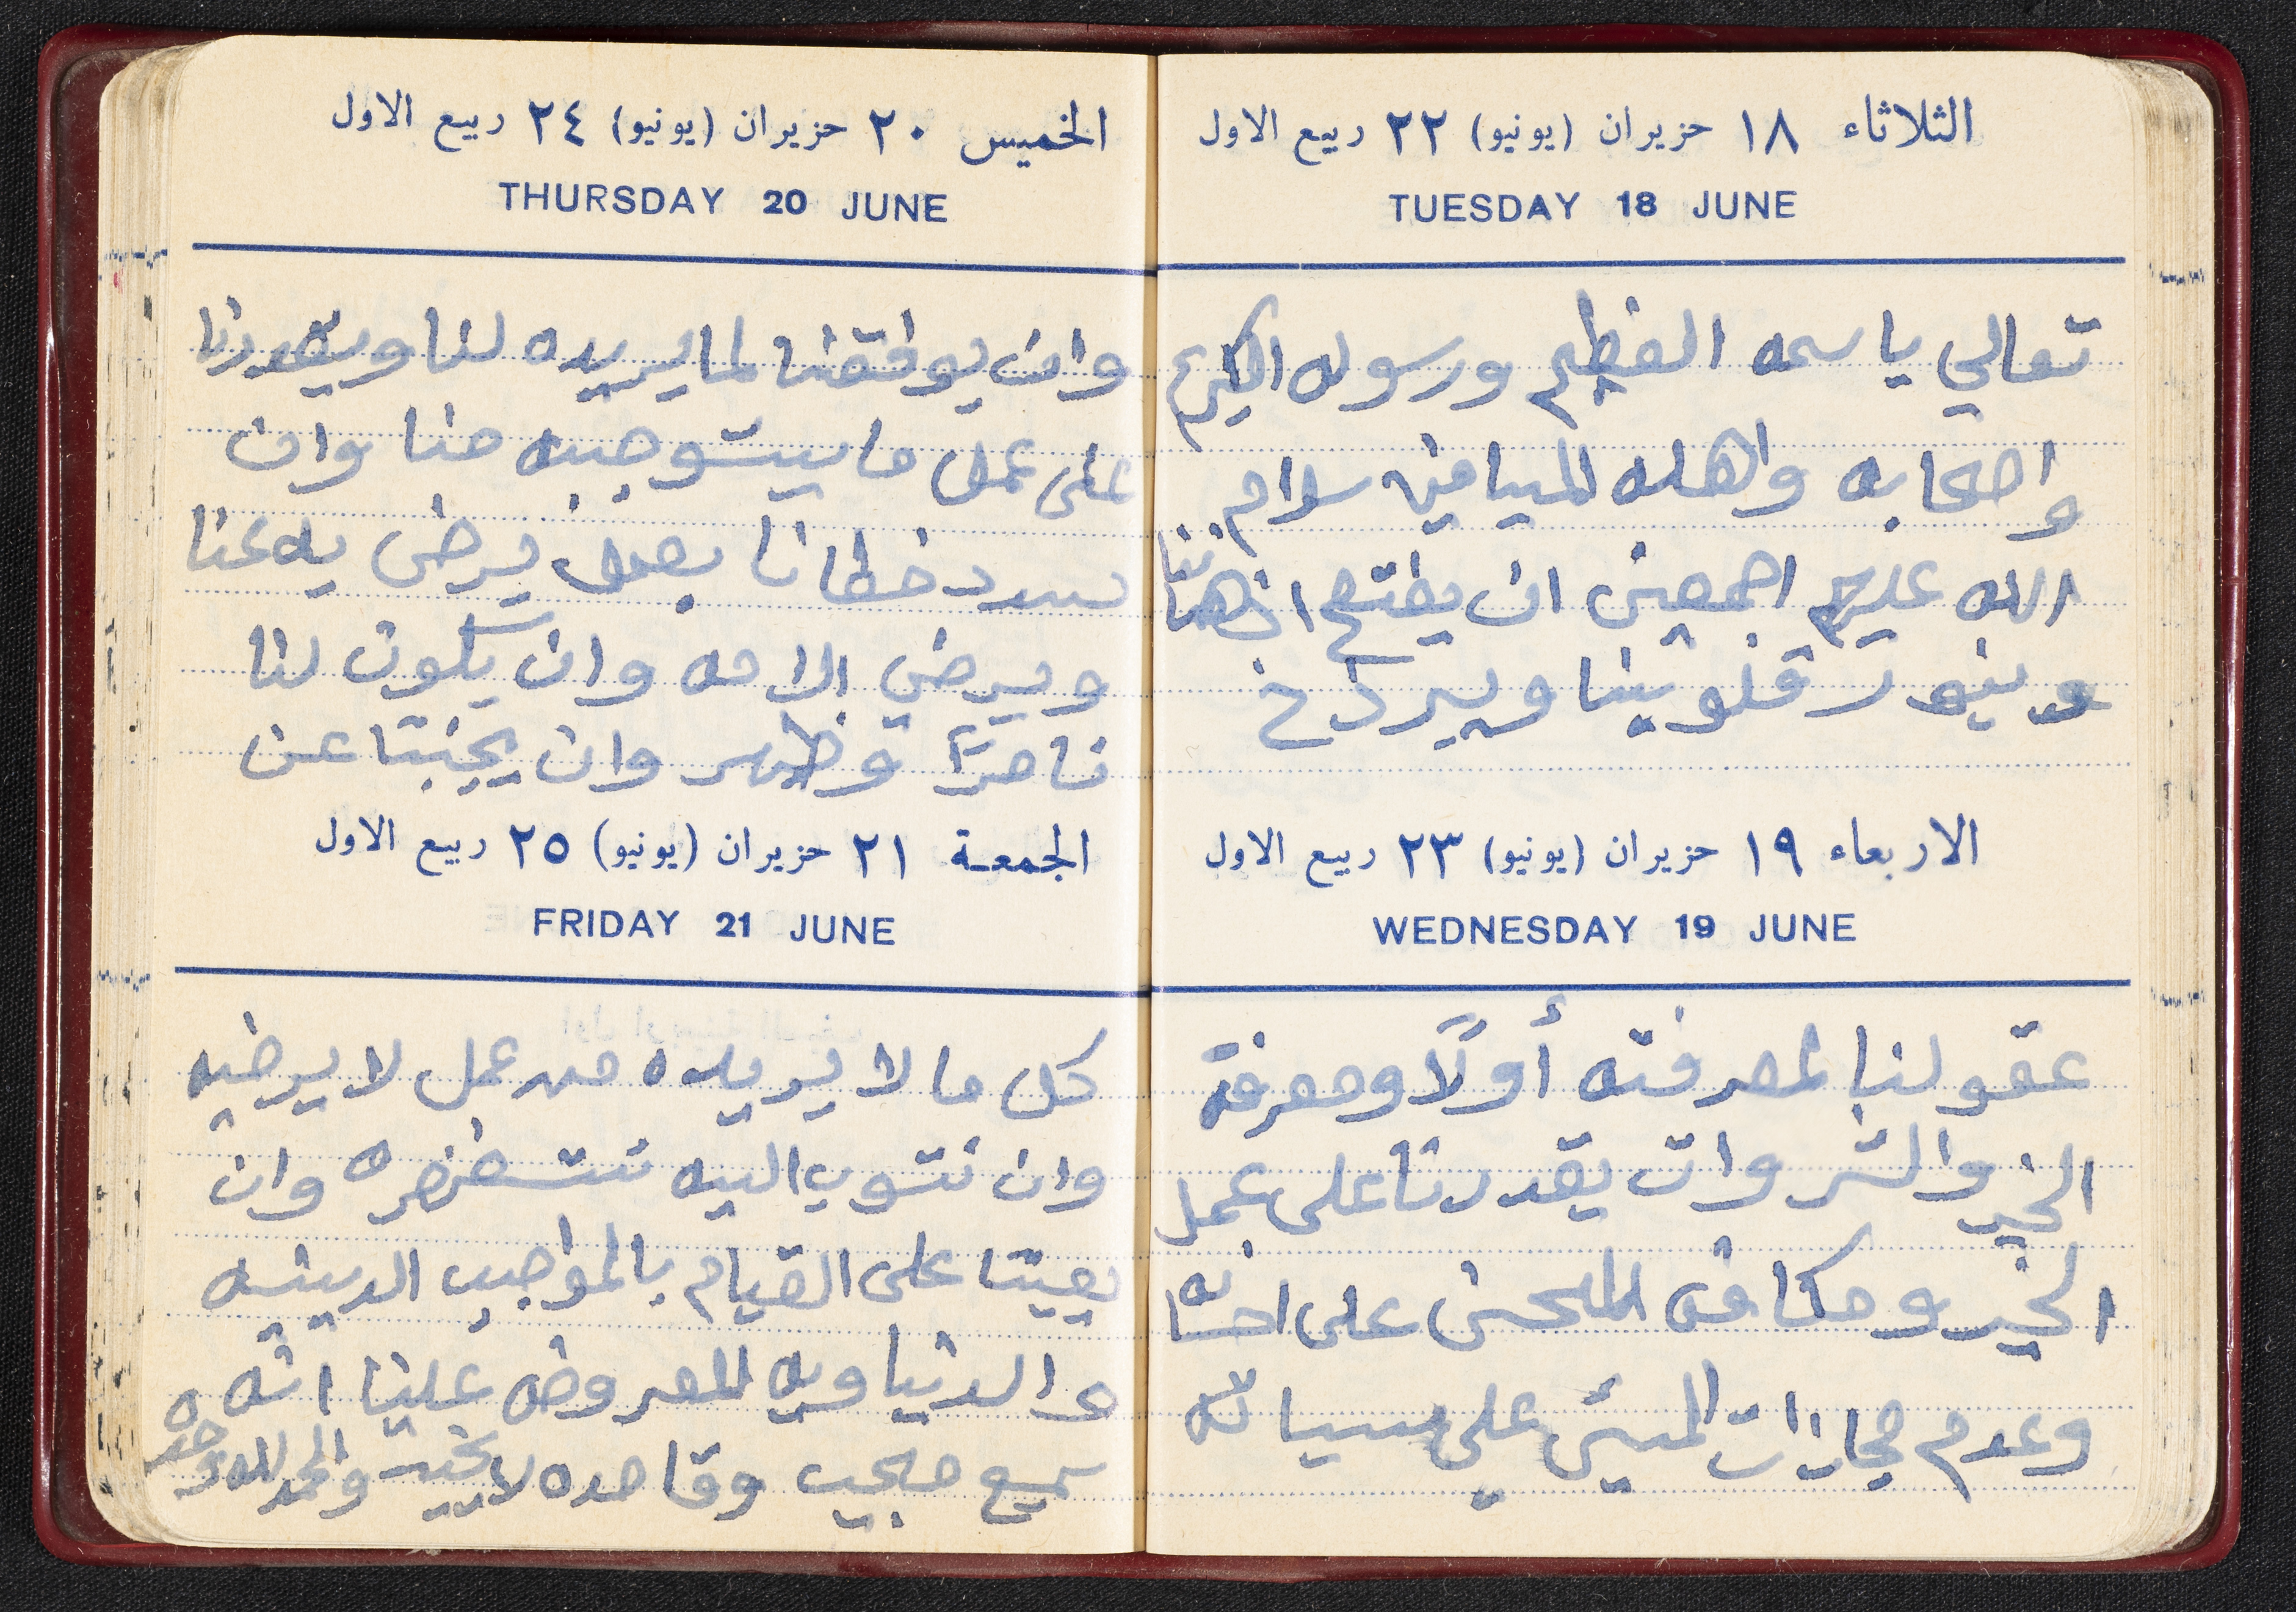 الثلاثاء ١٨ حزيران (يونيو) ٢٢ ربيع الاول
TUESDAY 18 JUNE
تعالي باسمه العظيم ورسوله الكريم
واصحابه واهله الميامين سلام
الله عليهم اجمعين ان يفتح اذهاننا
وينور قلوبنا ويرذخ
الاربعاء ١٩ حزيران (يونيو) ٢٣ ربيع الاول
WEDNESDAY 19 JUNE
عقولنا لمعرفته أولًا ومعرفة
الخير والشر وان يقدرنا على عمل
الخير ومكافئ المحسن على احسانه
وعدم مجازات المسئ علي سيأته
الخميس ٢٠ حزيران (يونيو) ٢٤ ربيع الاول
THURSDAY 20 JUNE
وان يوفقنا لما يريده لنا ويقدرنا
على عمل ما يستوجبه منا وان
يسدد خطانا بعمل يرضى به عنا
ويرضي الامه وان يكون لنا
ناصرًا وظهر وان يجنبنا عن
الجمعة ٢١ حزيران (يونيو) ٢٥ ربيع الاول
FRIDAY 21 JUNE
كل ما لا يريده من عمل لا يرضيه
وان نتوب اليه نستغفره وان
يعيننا على القيام بالمواجيب الدينيه
والدنياويه المعروضه علينا انه
سميع مجيب وقاصده لا يخيب والحمد لله وحده